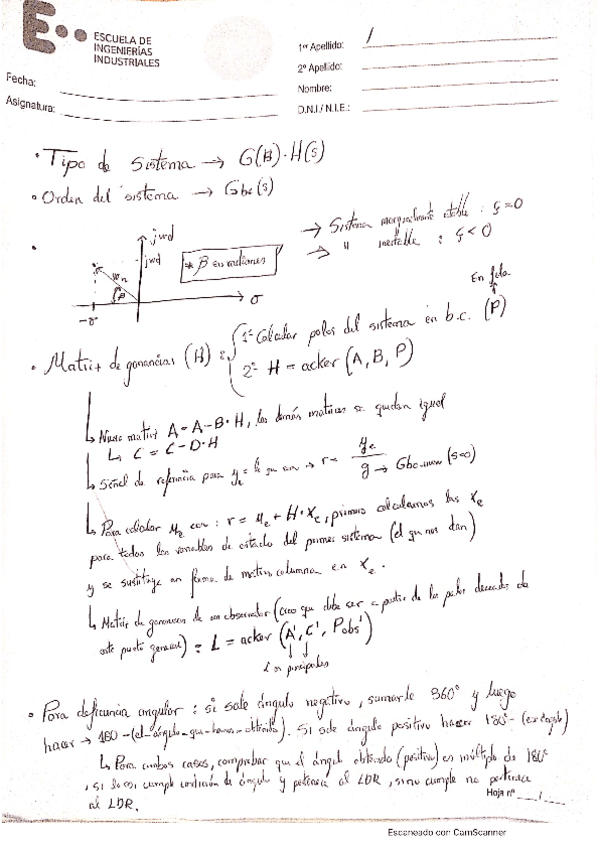 ESCUELA DE
INGENIERÍAS
INDUSTRIALES
1er Apellido:
2º Apellido:
Nombre:
D.N.I./ N.I.E.:
Fecha:
Asignatura:
• Tipo de sistema → G(s)·H(s)
• Orden del sistema → Gbc(s)
jwd
jwd
wn
β
-σ
σ
* β en radianes
→ Sistema marginalmente estable : ς=0
→ " inestable : ς<0
En fila
• Matriz de ganancias (H) : 1º Calcular polos del sistema en b.c. (P)
2º H = acker (A, B, P)
↳ Nueva matriz A = A-B·H, las demás matrices se quedan igual
↳ C = C-D·H
↳ Señal de referencia para ye = lo que sea → r = ye / g → Gbc (s=0)
↳ Para calcular ue con : r = ue + H·Xe, primero calculamos las xe
para todas las variables de estado del primer sistema (el que nos dan)
y se sustituye en forma de matriz columna en Xe.
↳ Matriz de ganancias de un observador (creo que debe ser a partir de los polos deseados de
este punto general) : L = acker (A', C', Pobs')
Los principales
• Para deficiencia angular : si sale ángulo negativo, sumarle 360° y luego
hacer → 180-(el-ángulo-que-hemos-obtenido). Si sale ángulo positivo hacer 180°-(ese ángulo)
↳ Para ambos casos, comprobar que el ángulo obtenido (positivo) es múltiplo de 180°
, si lo es, cumple condición de ángulo y pertenece al LDR, si no cumple no pertenece
al LDR.
Hoja nº / 
Escaneado con CamScanner